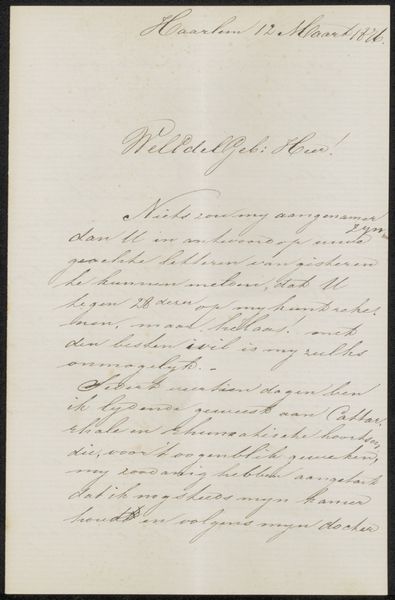 Haarlem 12 Maart 1876.
WelEdelGeb: Heer!
Niets zou my aangenamer zyn,
dan U in antwoord op uwe
geëerde letteren van gisteren
te kunnen melden, dat U
tegen 28 dezer op my kunt reke-
nen, maar helaas! met
den besten wil is my zulks
onmogelyk. -
Sedert veertien dagen ben
ik lydende geweest aan Cathar-
rhale en rhumatische koortsen,
die, voor 't oogenblik geweken,
my zoodanig hebben aangetast
dat ik nog steeds myn kamer
houdt en volgens myn docter